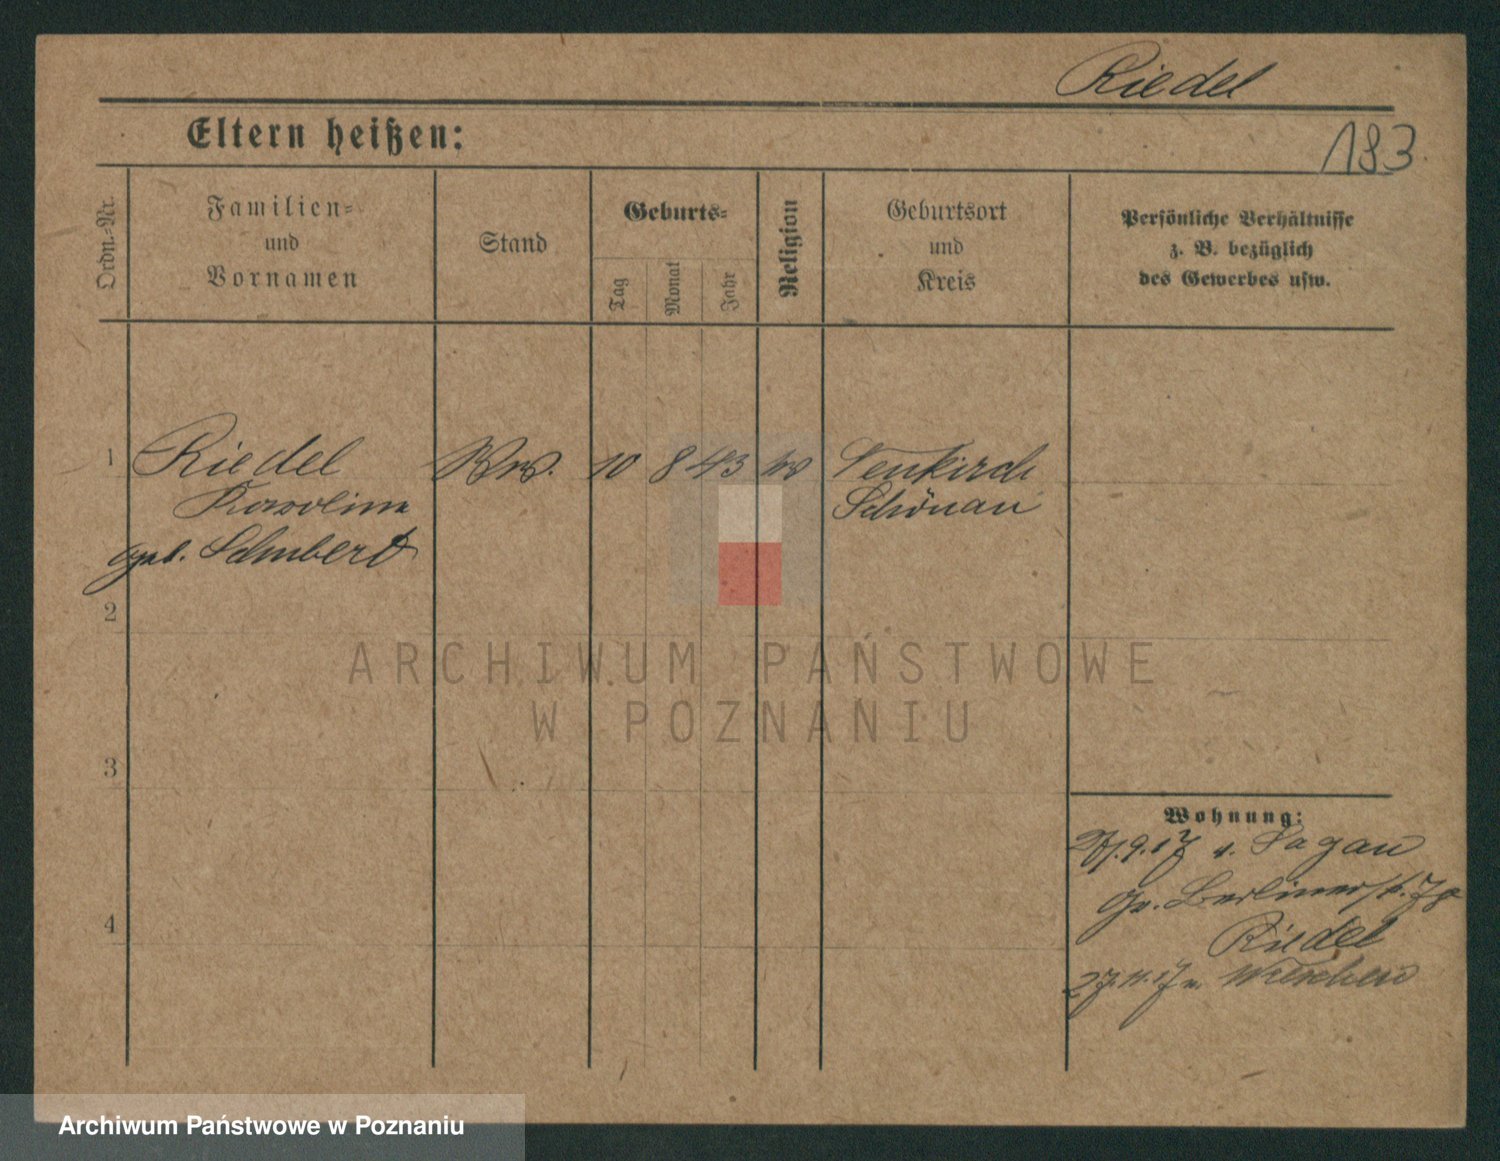 Riedel
183
Eltern heißen:
Ordn.-Nr.
Familien-
und
Vornamen
Stand
Geburts-
Tag
Monat
Jahr
Religion
Geburtsort
und
Kreis
Persönliche Verhältnisse
z. B. bezüglich
des Gewerbes usw.
1 Riedel Ww. 10 8 43 Neukirch
Karoline Schönau
geb. Schubert
2
3
4
Wohnung:
9.17 v. Sagan
Gr. Berlinerstr.
Riedel
27.11.17 n.
ARCHIWUM PAŃSTWOWE
W POZNANIU
Archiwum Państwowe w Poznaniu